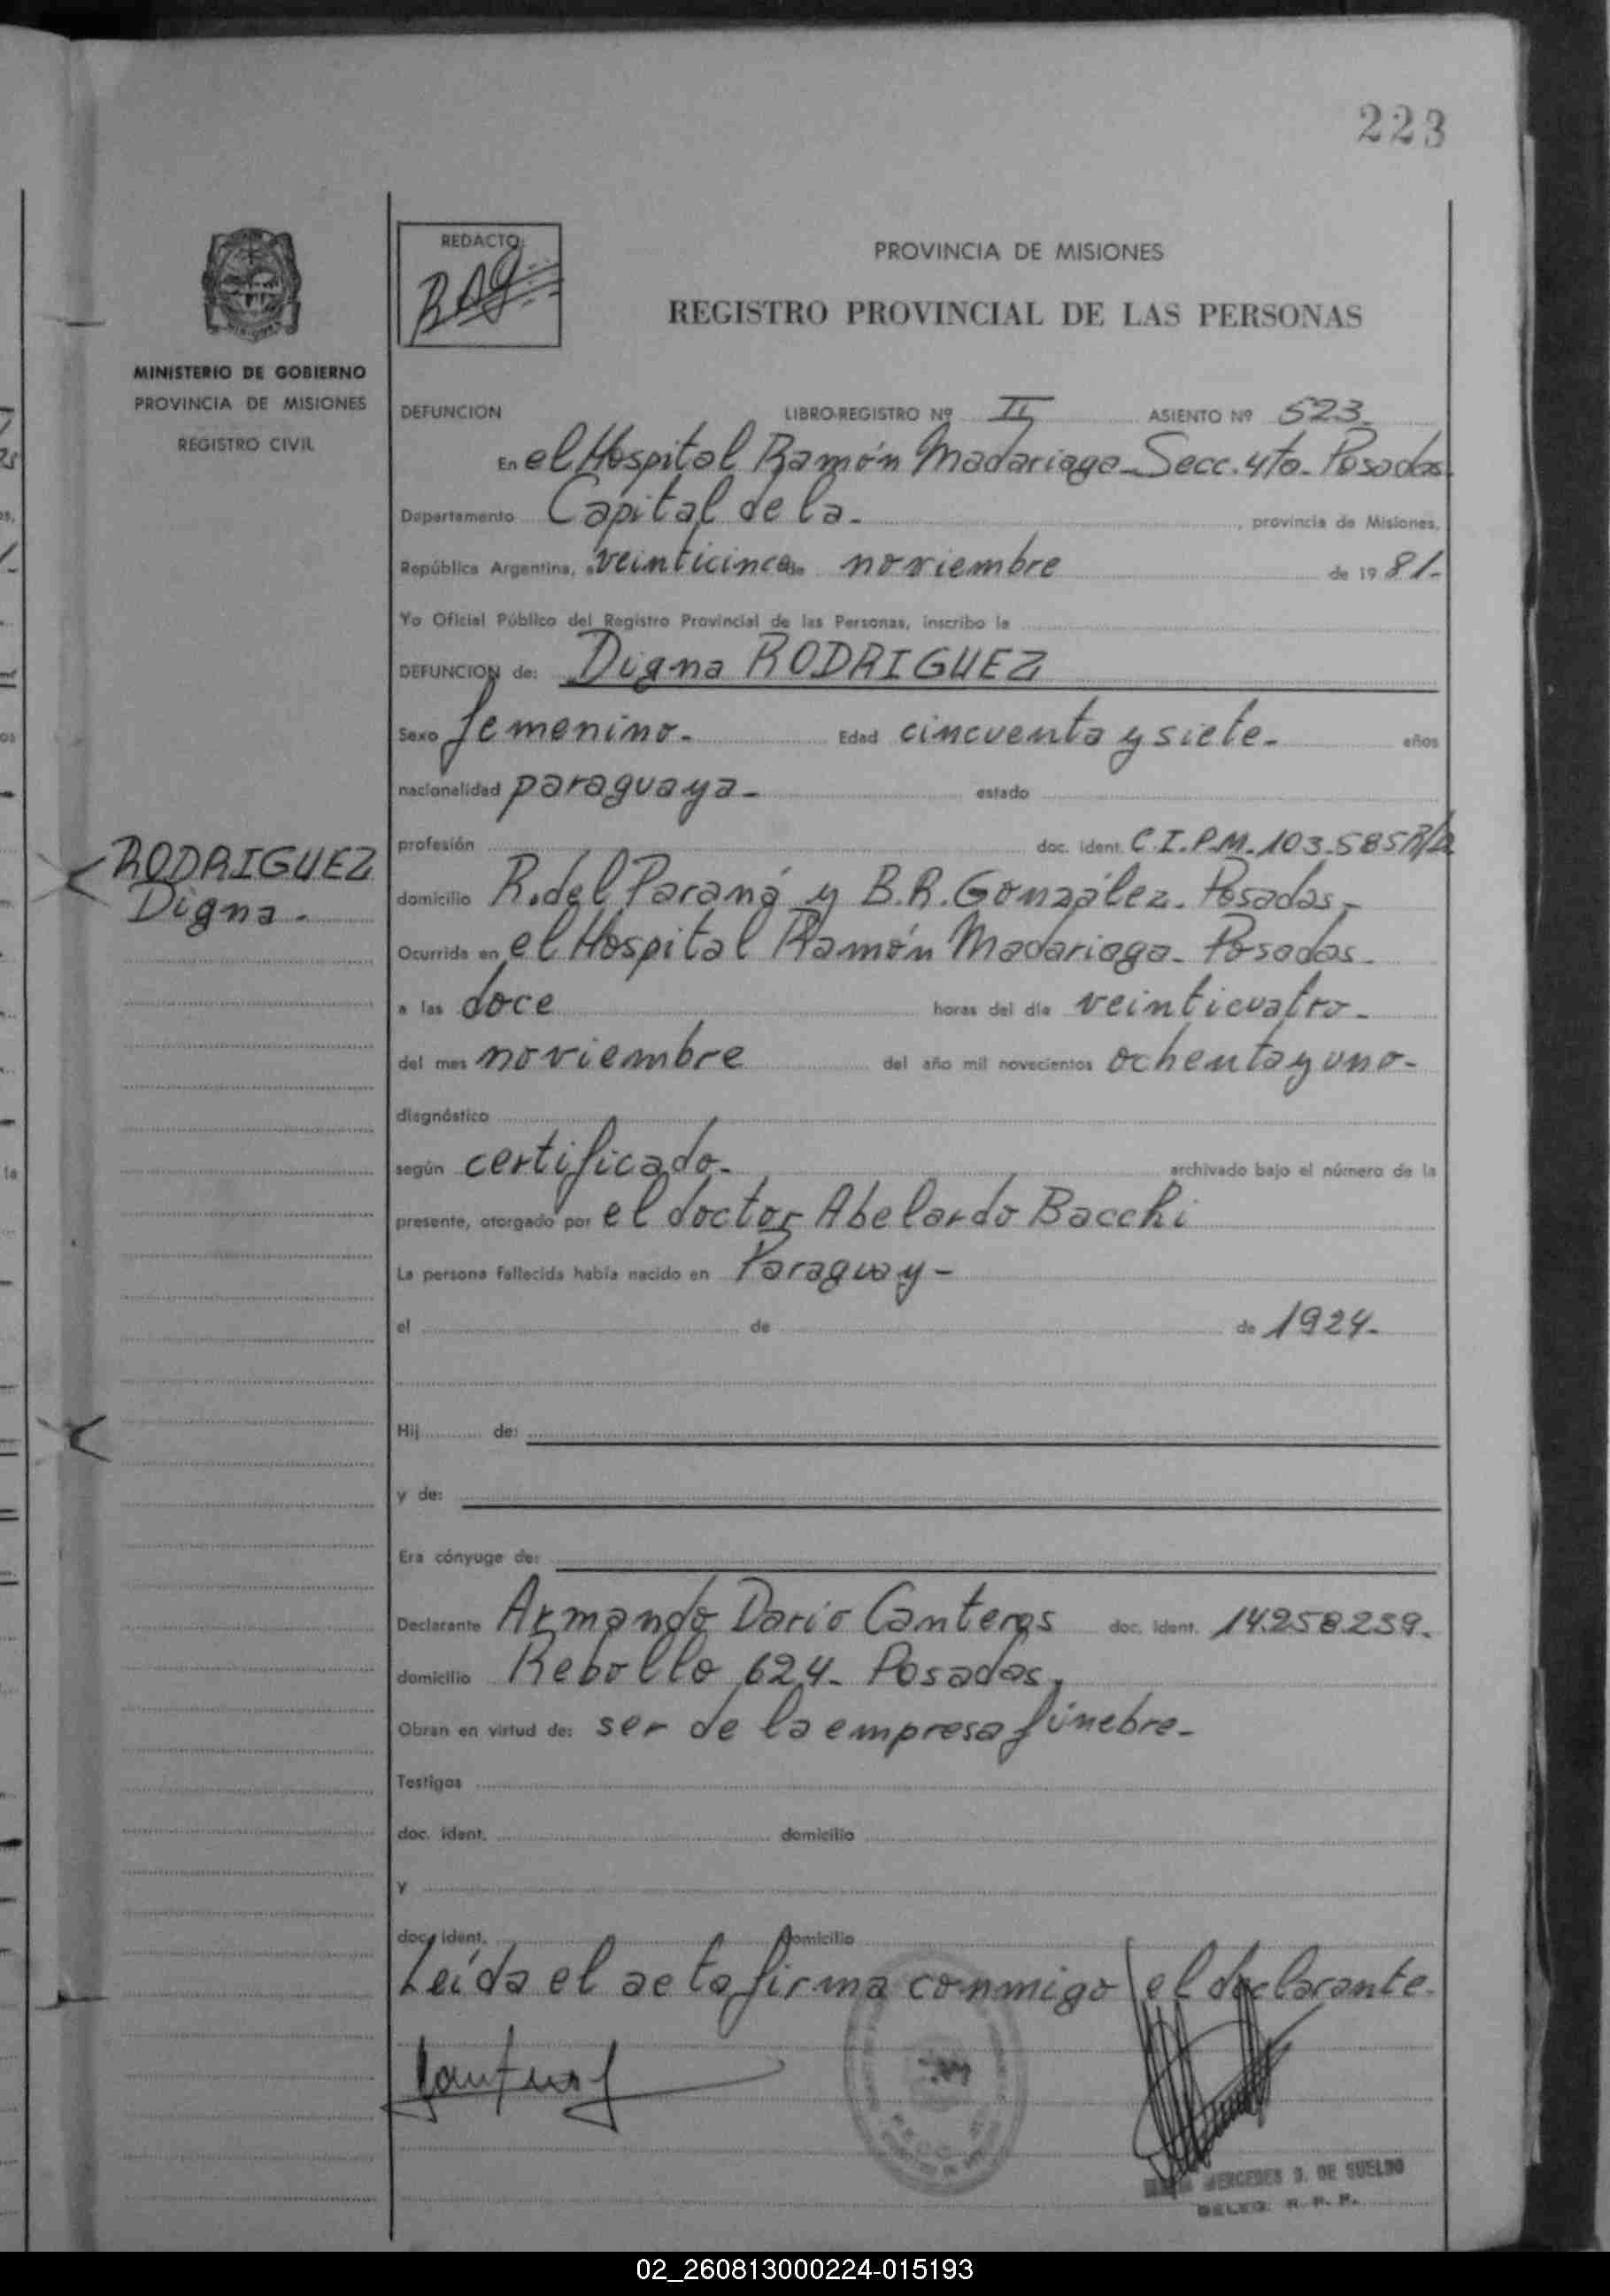 223
REDACTO:
PROVINCIA DE MISIONES
REGISTRO PROVINCIAL DE LAS PERSONAS
MINISTERIO DE GOBIERNO
PROVINCIA DE MISIONES
REGISTRO CIVIL
DEFUNCION LIBRO-REGISTRO Nº II ASIENTO Nº 523.
En el Hospital Ramón Madariaga - Secc. 4ta. Posadas.
Departamento Capital de la. , provincia de Misiones,
República Argentina, a veinticinco de noviembre de 1981.-
Yo Oficial Público del Registro Provincial de las Personas, inscribo la
DEFUNCION de: Digna RODRIGUEZ
Sexo femenino. Edad cincuenta y siete. años
nacionalidad paraguaya - estado
profesión doc. ident. C.I.P.M. 103.585
RODRIGUEZ
Digna.
domicilio R. del Paraná y B.R. González. Posadas.-
Ocurrida en el Hospital Ramón Madariaga - Posadas.
a las doce horas del día veinticuatro.
del mes noviembre del año mil novecientos ochenta y uno-
diagnóstico
según certificado. archivado bajo el número de la
presente, otorgado por el doctor Abelardo Bacchi
La persona fallecida había nacido en Paraguay -
el de de 1924.
Hij de:
y de:
Era cónyuge de:
Declarante Armando Dario Canteros doc. ident. 14.258.239.
domicilio Rebollo 624. Posadas.
Obran en virtud de: ser de la empresa fúnebre.
Testigos
doc. ident. domicilio
y
doc. ident. domicilio
Leída el acta firma conmigo el declarante.
MERCEDES D. DE SUELDO
DELEG. R. P. P.
02_260813000224-015193